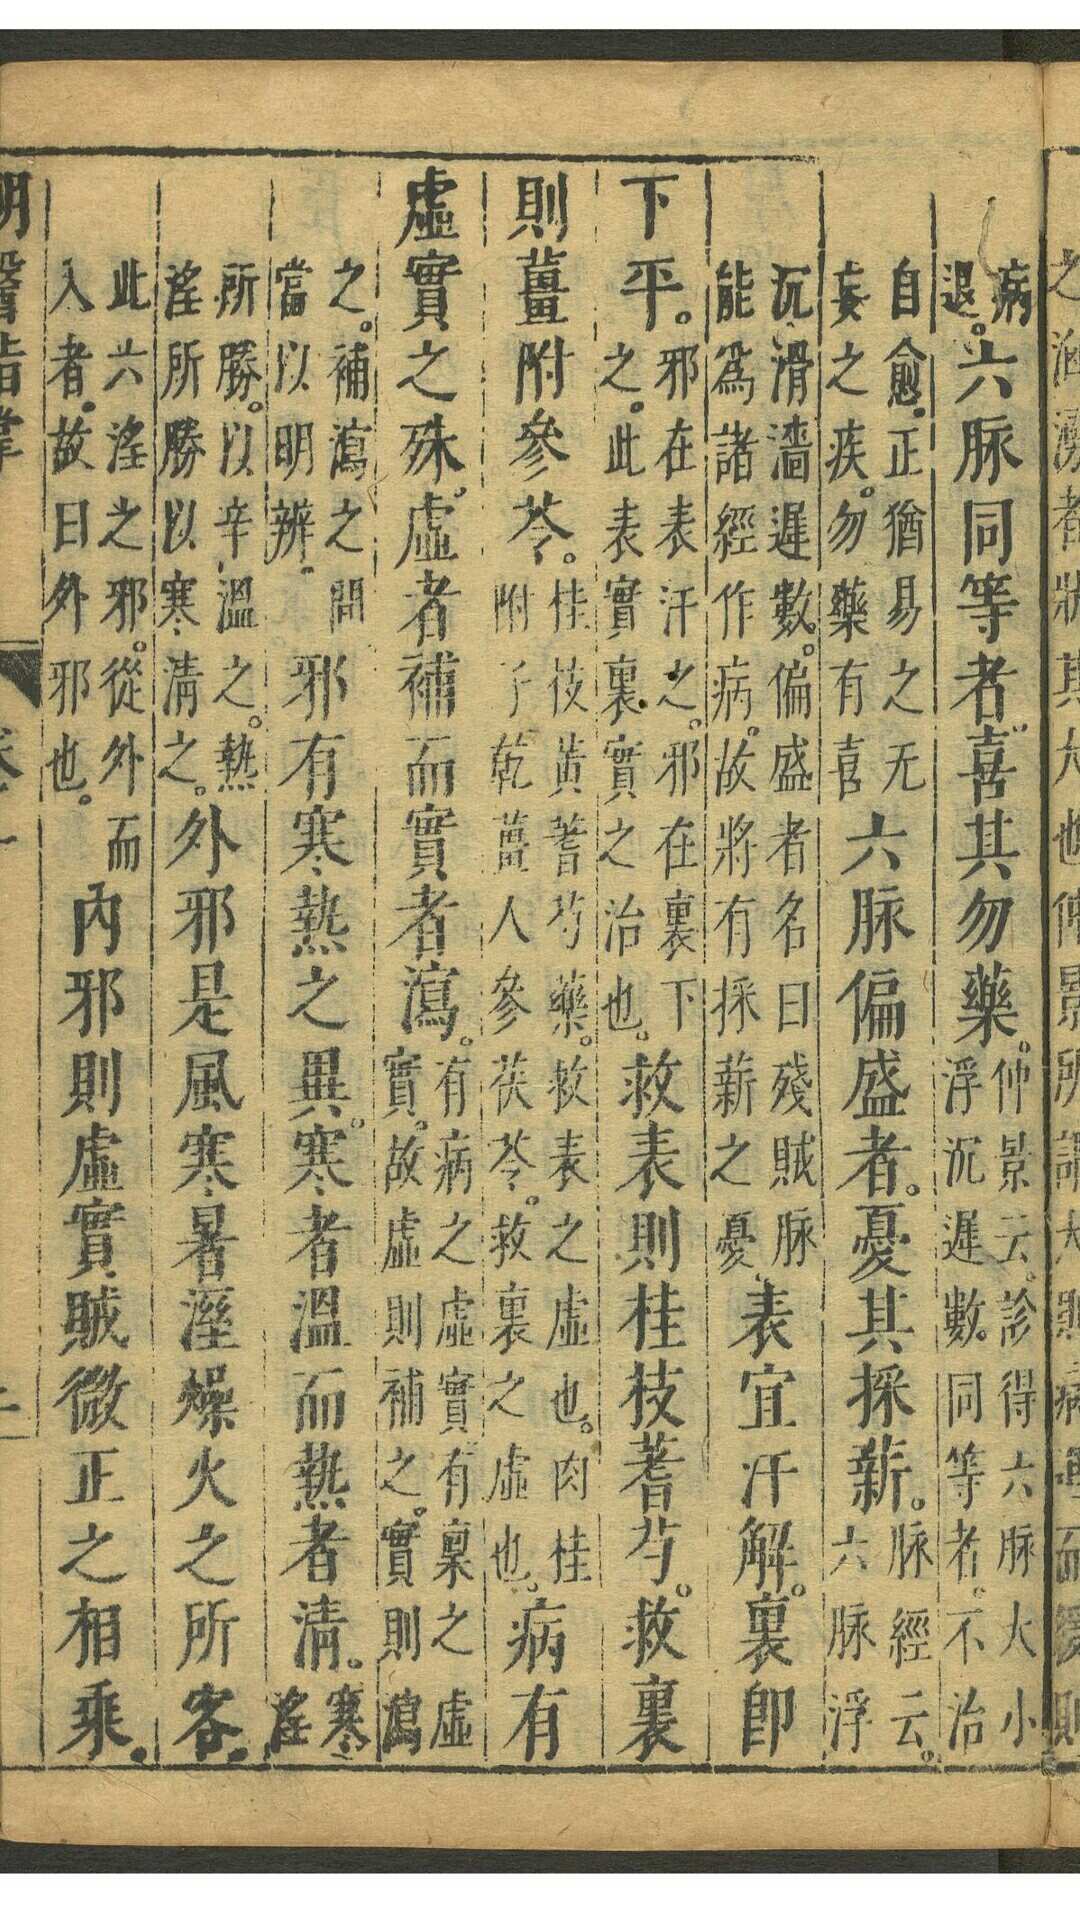 之洶湧者狀其大也仲景所謂大則病進而緩則
病退。六脉同等者喜其勿藥。仲景云。診得六脉大小浮沉遲數。同等者。不治
自愈。正猶易之无妄之疾。勿藥有喜六脉偏盛者。憂其採薪。脉經云。六脉浮
沉滑濇遲數。偏盛者名曰殘賊脉能爲諸經作病。故將有採薪之憂表宜汗解。裏即
下平。邪在表表汗之。邪在裏下之。此表實裏實之治也。救表則桂枝蓍芍。救裏
則薑附參苓。桂枝黃蓍芍藥。救表之虛也。肉桂附子乾薑人參茯苓。救裏之虛也。病有
虛實之殊。虛者補而實者瀉。有病之虛實有稟之虛實。故虛則補之。實則瀉
之。補瀉之間當以明辨。邪有寒熱之異。寒者溫而熱者清。寒淫
所勝。以辛溫之。熱淫所勝以寒清之。外邪是風寒暑溼燥火之所客。
此六淫之邪。從外而入者。故曰外邪也。內邪則虛實賊微正之相乘。
明醫指掌 卷一